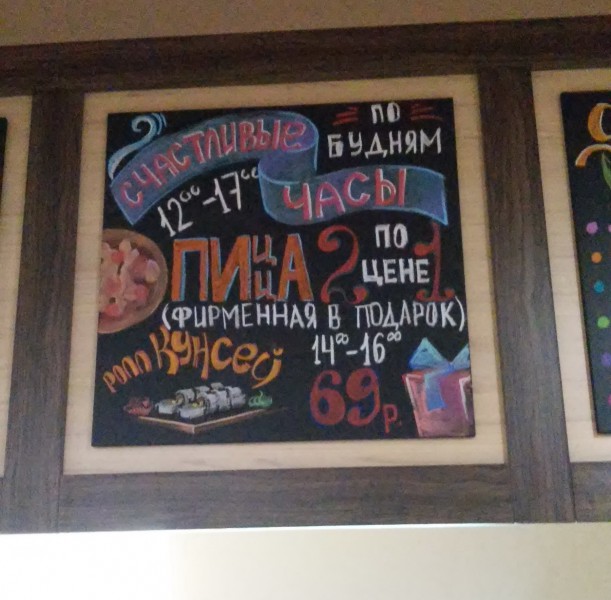 СЧАСТЛИВЫЕ
ЧАСЫ
ПО
БУДНЯМ
12⁰⁰-17⁰⁰
ПИЦЦА 2 ПО ЦЕНЕ 1
(ФИРМЕННАЯ В ПОДАРОК)
14⁰⁰-16⁰⁰
РОЛЛ КУНСЕЙ
69 р.